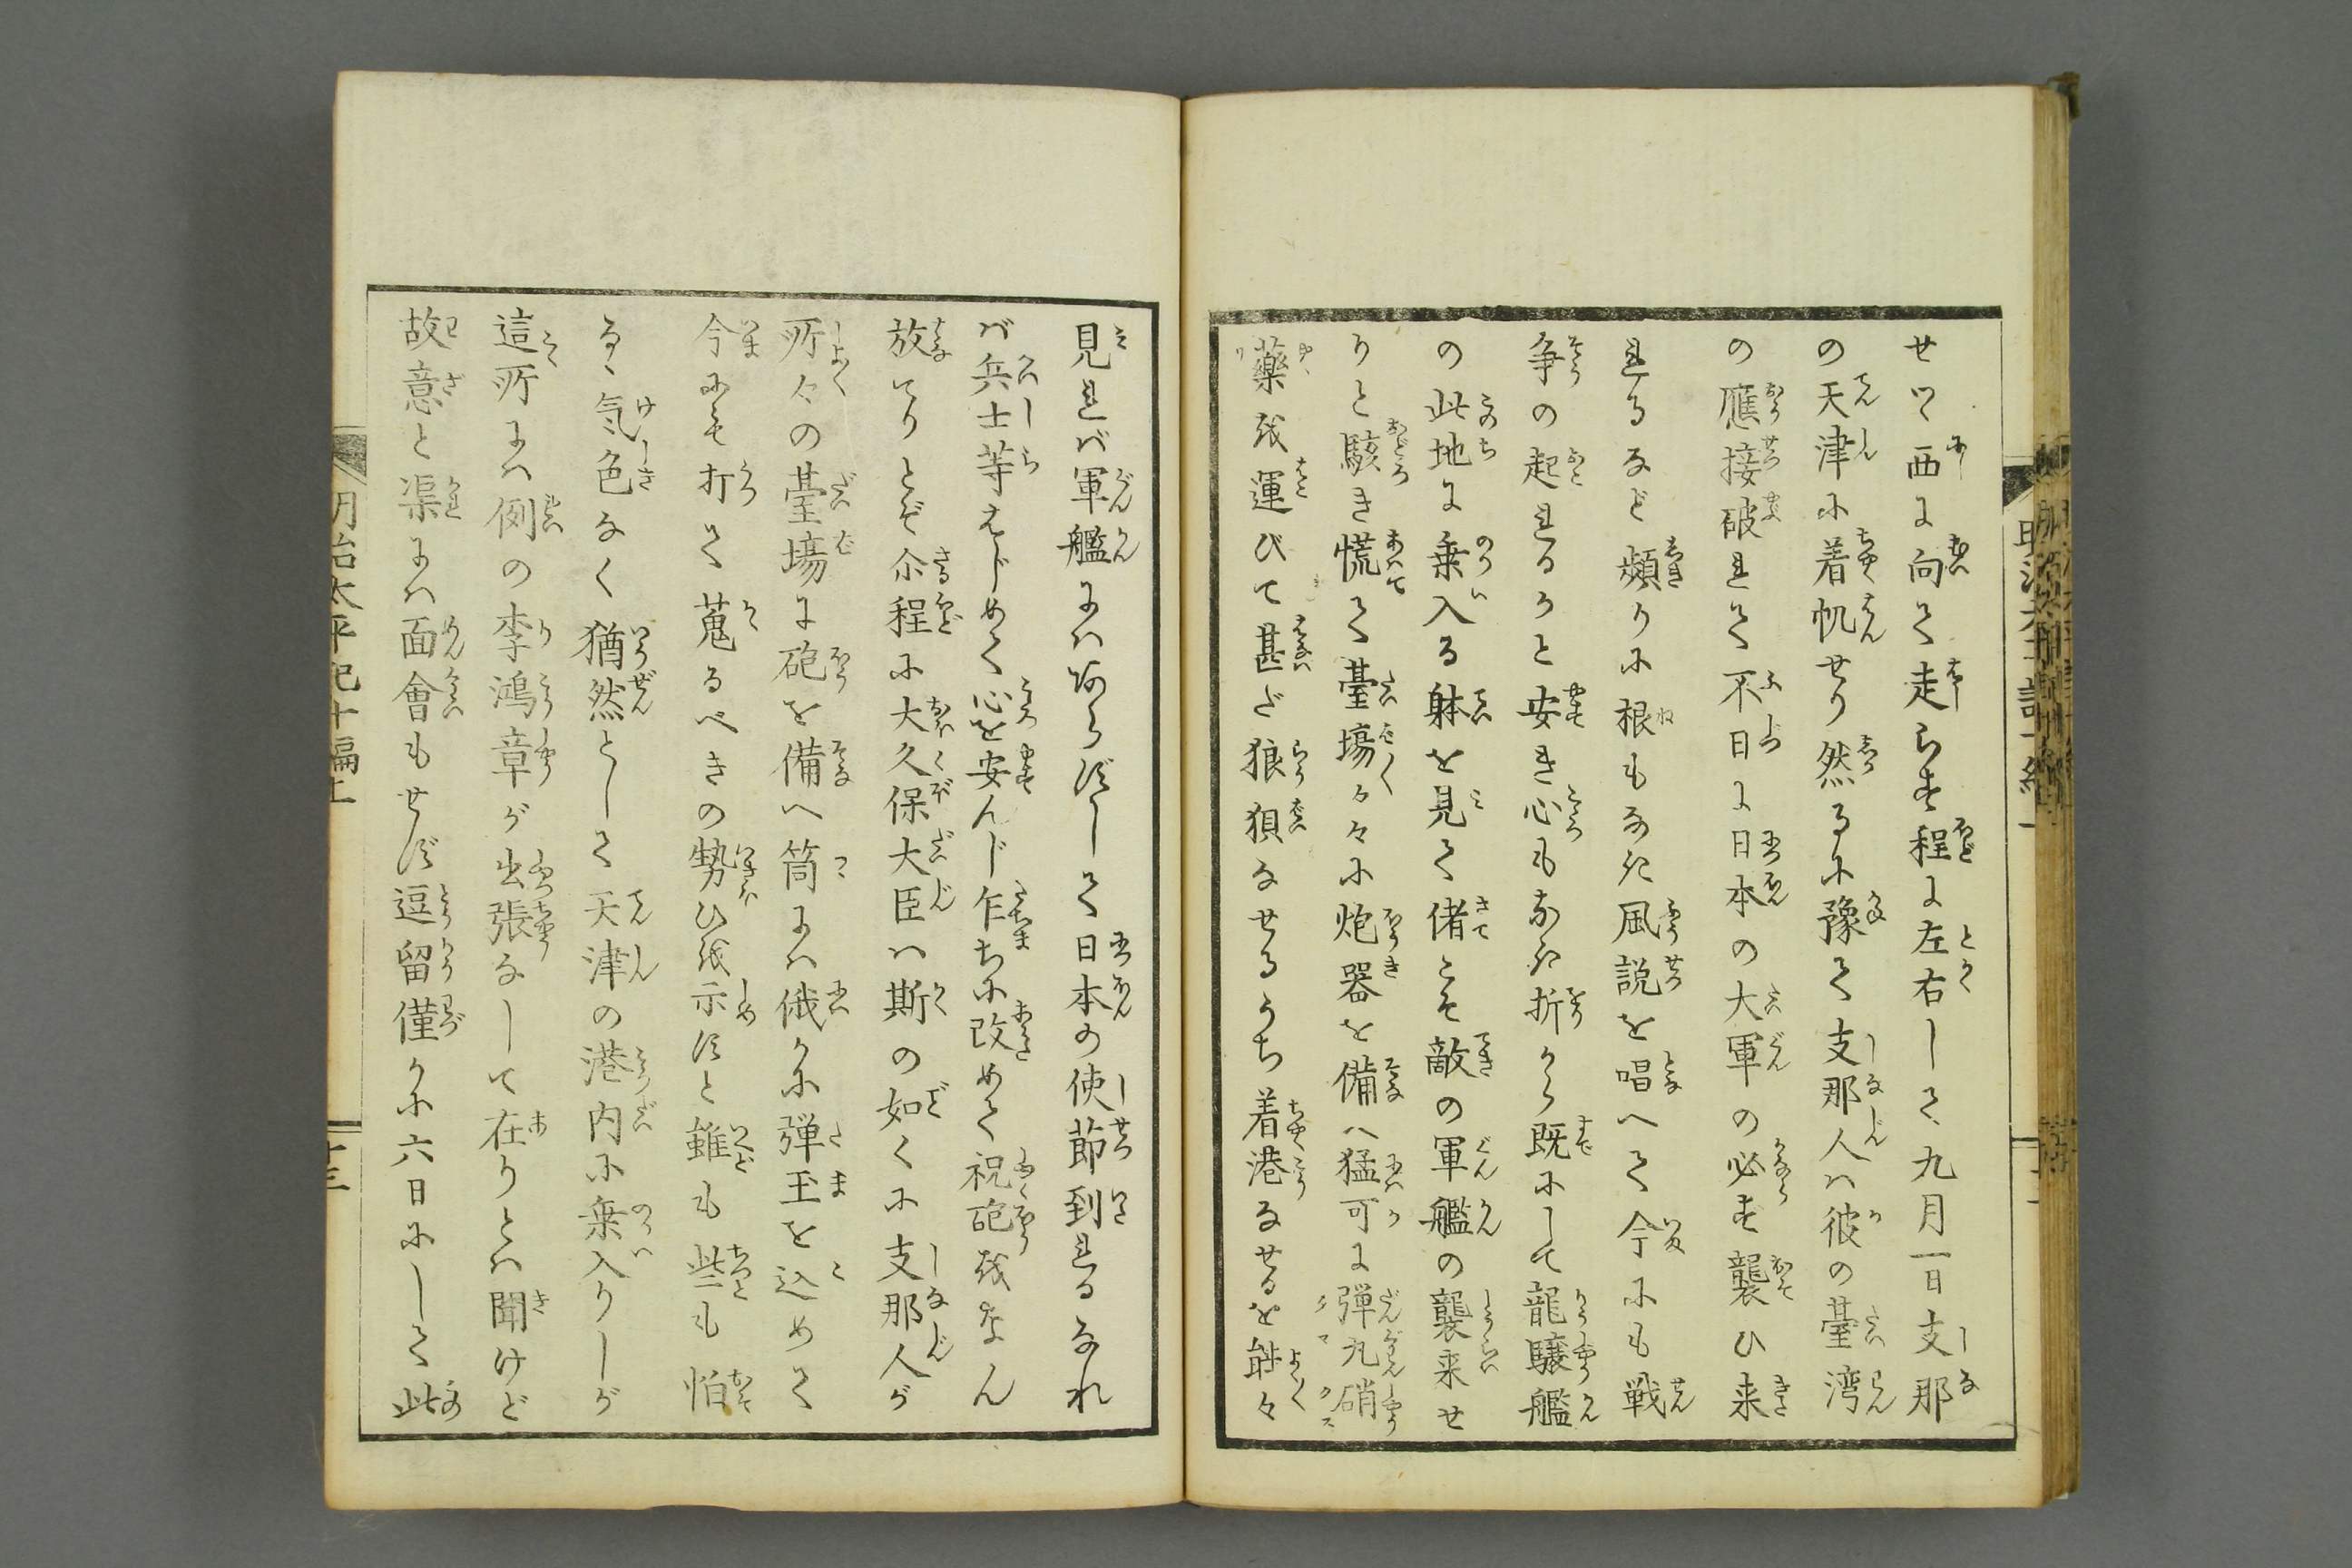 せつゝ西に向て走らす程に左右して九月一日支那
の天津に着帆せり然るに豫て支那人ハ彼の臺湾
の應接破れて不日に日本の大軍の必ず襲ひ来
れるなど頻りに根もなき風説を唱へて今にも戦
争の起れるかと安き心もなき折から既にして龍驤艦
の此地に乗入る躰を見て偖こそ敵の軍艦の襲来せ
りと駭き慌て臺場々々に炮器を備ハ猛可に弾丸硝
藥を運びて甚だ狼狽なせるうち着港なせるを能々
見れバ軍艦にハあらずして日本の使節到れるなれ
バ兵士等はじめて心を安んじ乍ちに改めて祝砲をなん
放てりとぞ尒程に大久保大臣ハ斯の如くに支那人が
所々の臺場に砲を備へ筒にハ俄かに弾玉を込めて
今にも打て蒐るべきの勢ひを示すと雖も些も怕
るゝ気色なく猶然として天津の港内に乗入りしが
這所にハ例の李鴻章が出張なして在りとハ聞けど
故意と渠にハ面會もせず逗留僅かに六日にして此
明治太平記十編上
十三